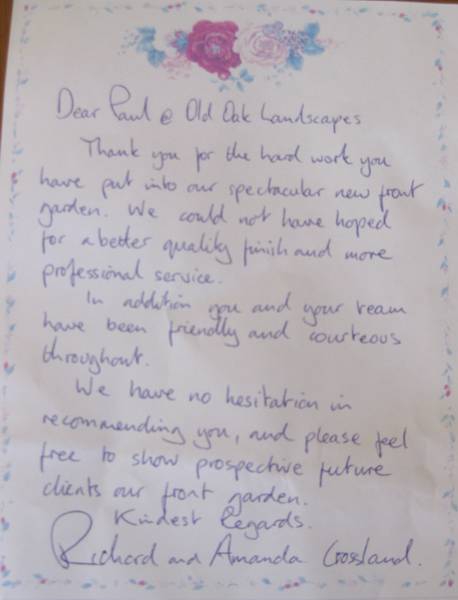 Dear Paul @ Old Oak Landscapes
Thank you for the hard work you
have put into our spectacular new front
garden. We could not have hoped
for a better quality finish and more
professional service.
In addition you and your team
have been friendly and courteous
throughout.
We have no hesitation in
recommending you, and please feel
free to show prospective future
clients our front garden.
Kindest Regards.
Richard and Amanda Crossland.